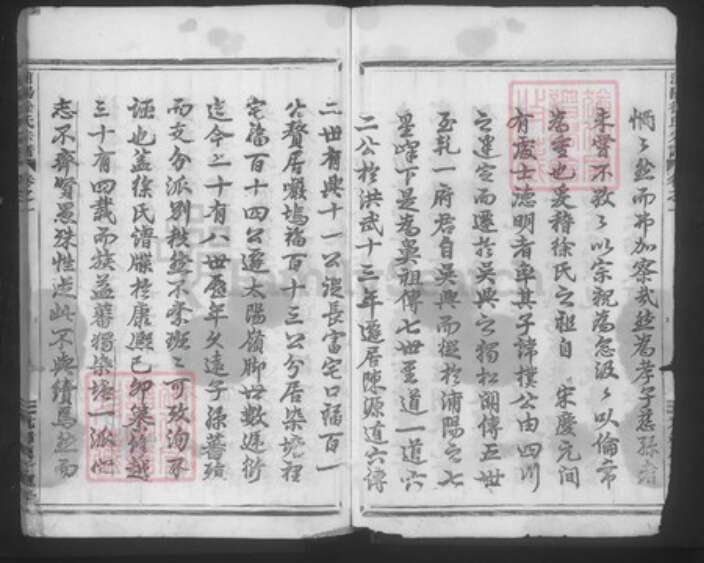 惘惘然而弗加察哉然為孝子慈孫者
未嘗不敦敦以宗祝為急汲汲以倫常
為重也爰稽徐氏之祖自 宋慶元間
有處士德明者率其子諱樸公由四川
之建定而遷於吳興之獨松湖傳五世
至乾一府君自吳興而從於浦陽之七
星峰下是為鼻祖傳七世至道一道六
二公於洪武十三年遷居陳源道六傳
二世有興十一公漢長富宅口福百一
公贅居 塢福百十三公分居染塘裡
宅福百十四公遷太陽嶺脚世數遞衍
迄今二十有八世歷年久遠子孫蕃殖
而支分派別秩然不紊班班可攷洵不
誣也蓋徐氏譜牒於康熙己卯 修越
三十有四載而族益蕃獨染塘一派心
志不齊賢愚殊性 此不與續焉然而
FamilySearch